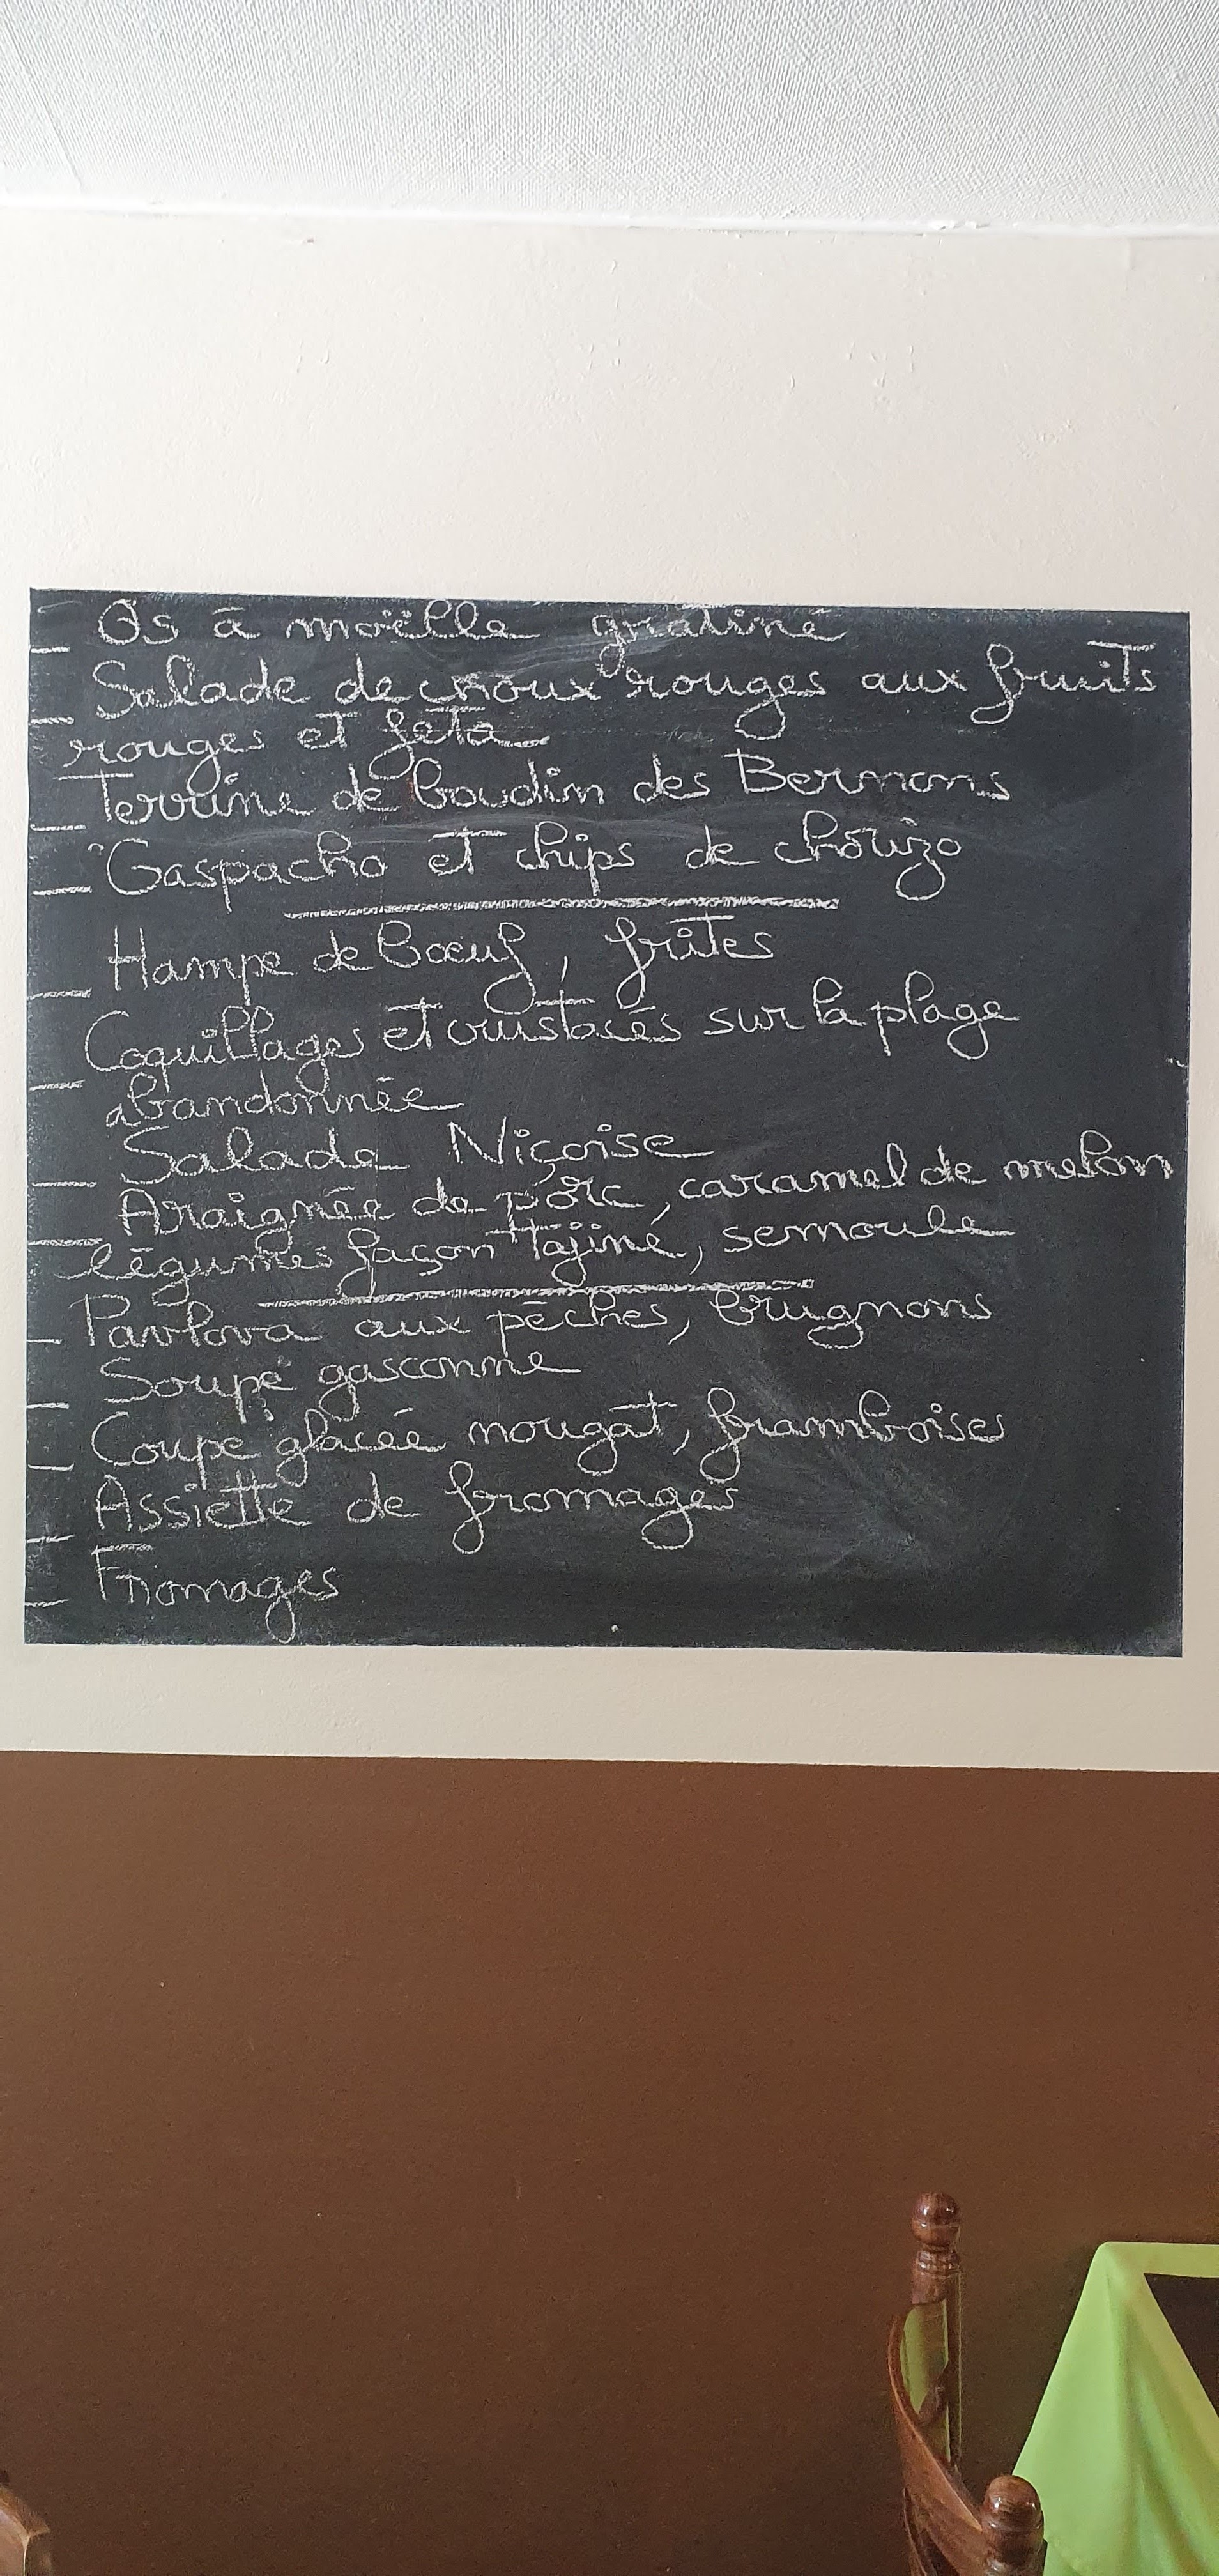 - Os à moëlle gratiné
- Salade de choux rouges aux fruits
rouges et feta
- Terrine de boudin des Bernons
- Gaspacho et chips de chorizo
- Hampe de bœuf, frites
- Coquillages et crustacés sur la plage
abandonnée
- Salade Niçoise
- Araignée de porc, caramel de melon
légumes façon tajine, semoule
- Pavlova aux pêches, brugnons
- Soupe gasconne
- Coupe glacée nougat, framboises
- Assiette de fromages
- Fromages